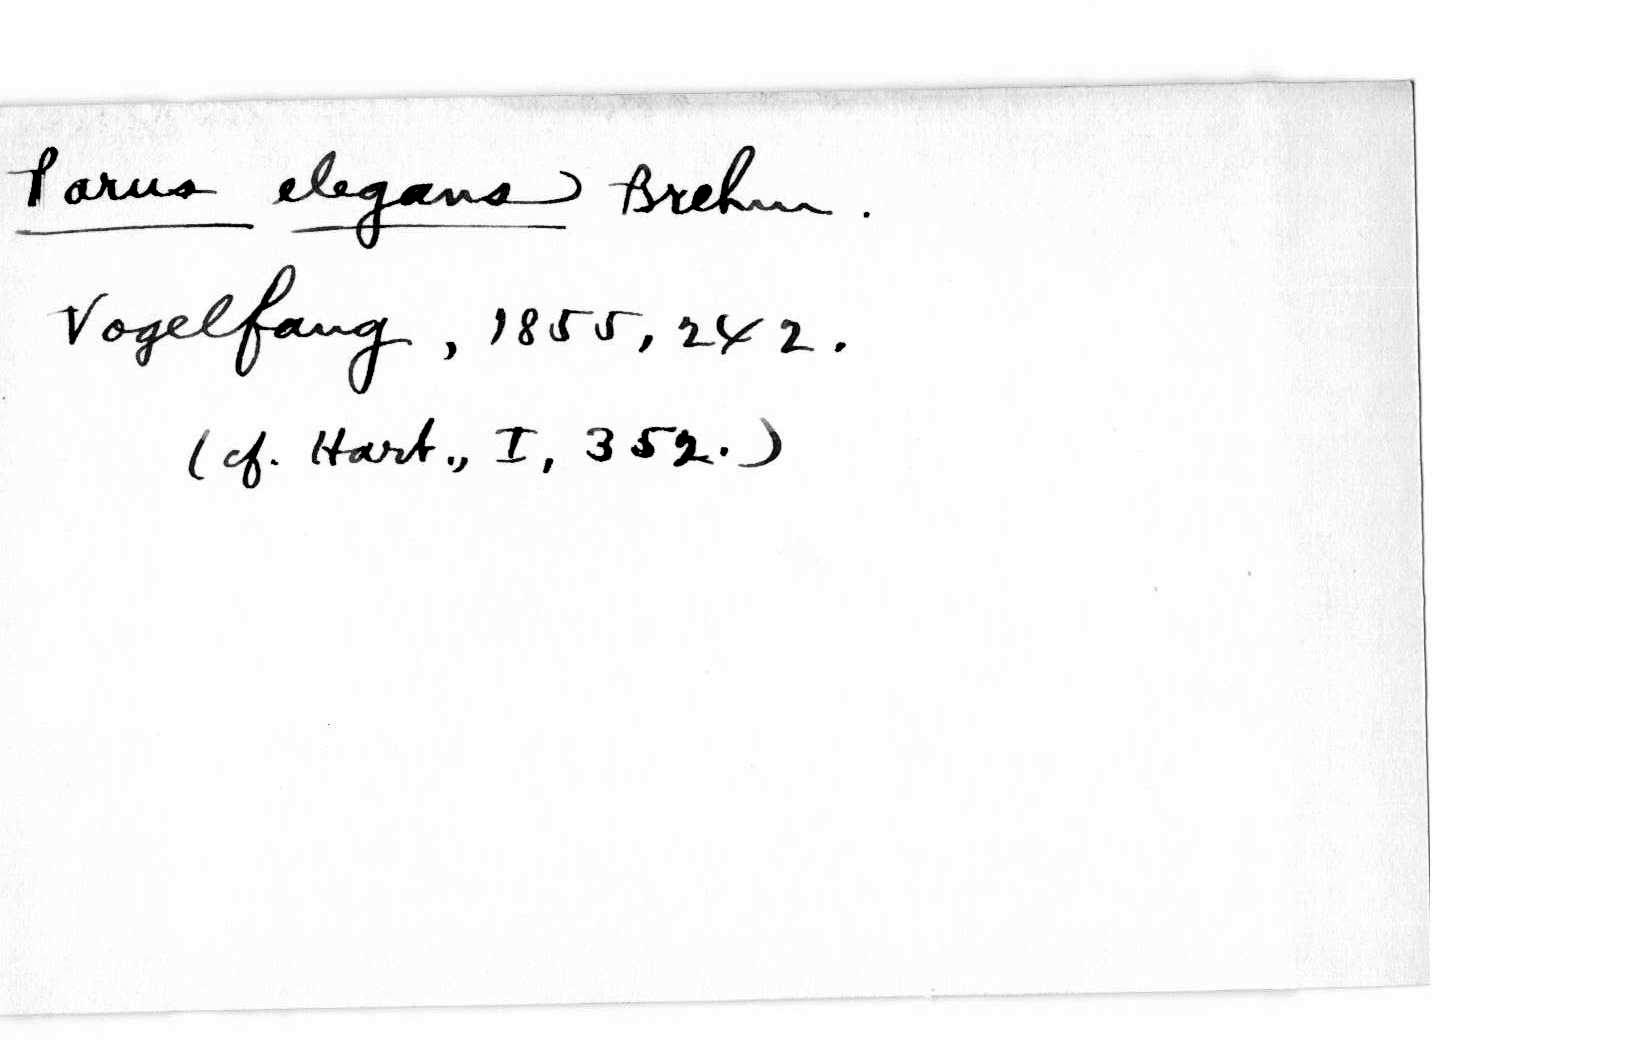 Parus elegans Brehm.
Vogelfang, 1855, 242.
(cf. Hart., I, 352.)